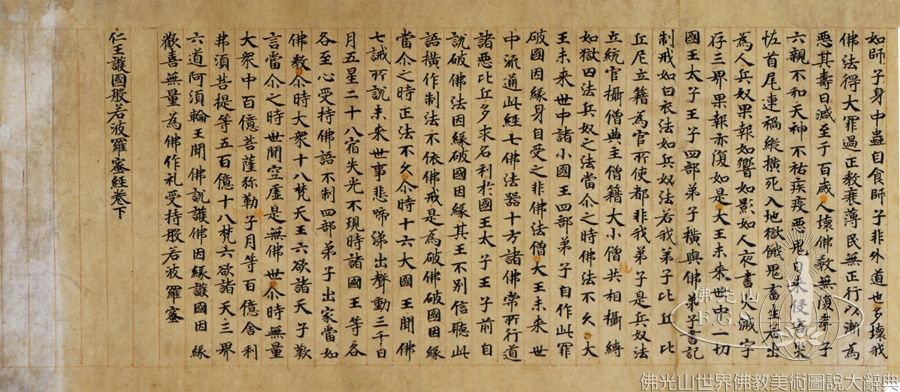 如師子身中虫自食師子非外道也多壞我
佛法得大罪過正教衰薄民無正行以漸為
惡其壽日減至于百歲人壞佛教無復孝子
六親不和天神不祐疾疫惡鬼日來侵害災
恠首尾連禍縱橫死入地獄餓鬼畜生若出
為人兵奴果報如響如影如人夜書火滅字
存三界果報亦復如是大王未來世中一切
國王太子王子四部弟子橫與佛弟子書記
制戒如白衣法如兵奴法若我弟子比丘比
丘尼立籍為官所使都非我弟子是兵奴法
立統官攝僧典主僧籍大小僧共相攝縛
如獄囚法兵奴之法當尒之時佛法不久大
王未來世中諸小國王四部弟子自作此罪
破國因緣身自受之非佛法僧大王未來世
中流通此經七佛法器十方諸佛常所行道
諸惡比丘多求名利於國王太子王子前自
說破佛法因緣破國因緣其王不別信聽此
語橫作制法不依佛戒是為破佛破國因緣
當尒之時正法不久尒時十六大國王聞佛
七誡所說未來世事悲啼涕出聲動三千日
月五星二十八宿失光不現時諸國王等各
各至心受持佛語不制四部弟子出家當如
佛教尒時大衆十八梵天王六欲諸天子歎
言當尒之時世間空虛是無佛世尒時無量
大衆中百億菩薩弥勒子月等百億舍利
弗須菩提等五百億十八梵六欲諸天三界
六道阿須輪王聞佛說護佛因緣護國因緣
歡喜無量為佛作礼受持般若波羅蜜
仁王護國般若波羅蜜經卷下
佛光山
F.G.S.
佛光山世界佛教美術圖說大辭典